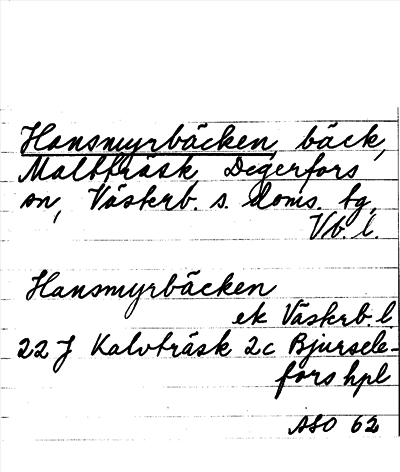 Hansmyrbäcken, bäck,
Maltträsk, Degerfors
sn, Västerb. s. doms. tg,
Vb. l.
Hansmyrbäcken
ek Västerb. l
22 J Kalvträsk 2c Bjursele-
fors hpl
ASO 62